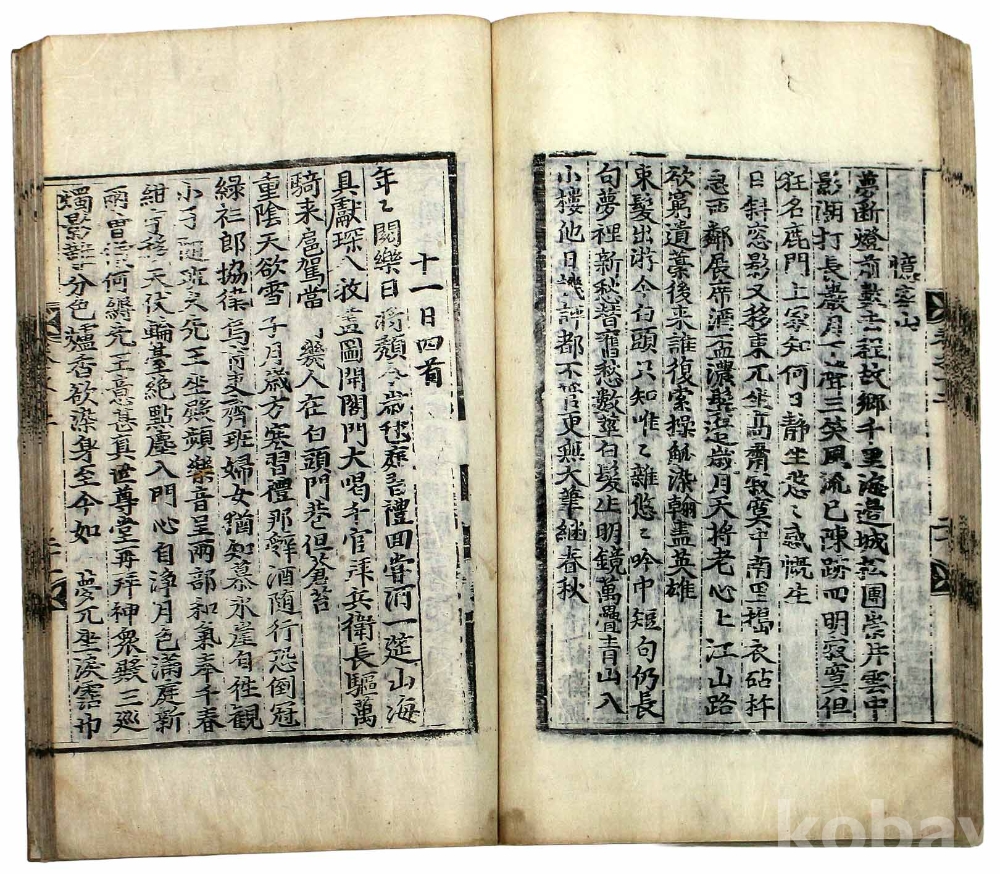 憶家山
夢斷燈前數去程故鄉千里海邊城松圃崇井雲中
影潮打長巖月下聲三笑風流已陳跡四明寂寞但
狂名鹿門上冢知何日靜坐悠〻感慨生
日斜窓影又移東兀坐高齋寂寞中南里擣衣砧杵
急西鄰展席酒盃濃鬢邊歲月天將老心上江山路
欲窮遺藁後來誰復索操觚染翰盡英雄
束髮出游今白頭只知唯〻雜悠〻吟中短句仍長
句夢裡新愁替舊愁數莖白髮生明鏡萬疊青山入
小樓他日譏評都不管更無大筆繼春秋
十一日四首
年〻閱樂日將頹今歲
禮回嘗酒一筵山海
具獻琛八
蓋圖開閤門大喝千官拜兵衛長驅萬
騎來扈駕當
幾人在白頭門巷但蒼苔
重陰天欲雪子月歲方寒習禮那辭酒隨行恐倒冠
綠衫郎協律烏
東齊班婦女猶知慕氷崖自往觀
小
隨班
元王坐
頻樂音呈兩部和氣奉千春
紺
天
輪基絶點塵入門心自淨月色滿庭新
雨
何
元王意甚真世尊堂再拜神衆繞三巡
燭影
分色爐香欲染身至今如
夢兀坐淚霑巾